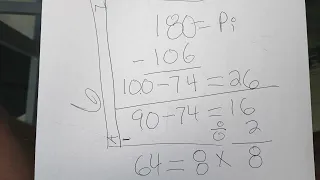 180 = Pi
- 106
100 - 74 = 26
90 - 74 = 16
÷ 2
64 = 8 × 8